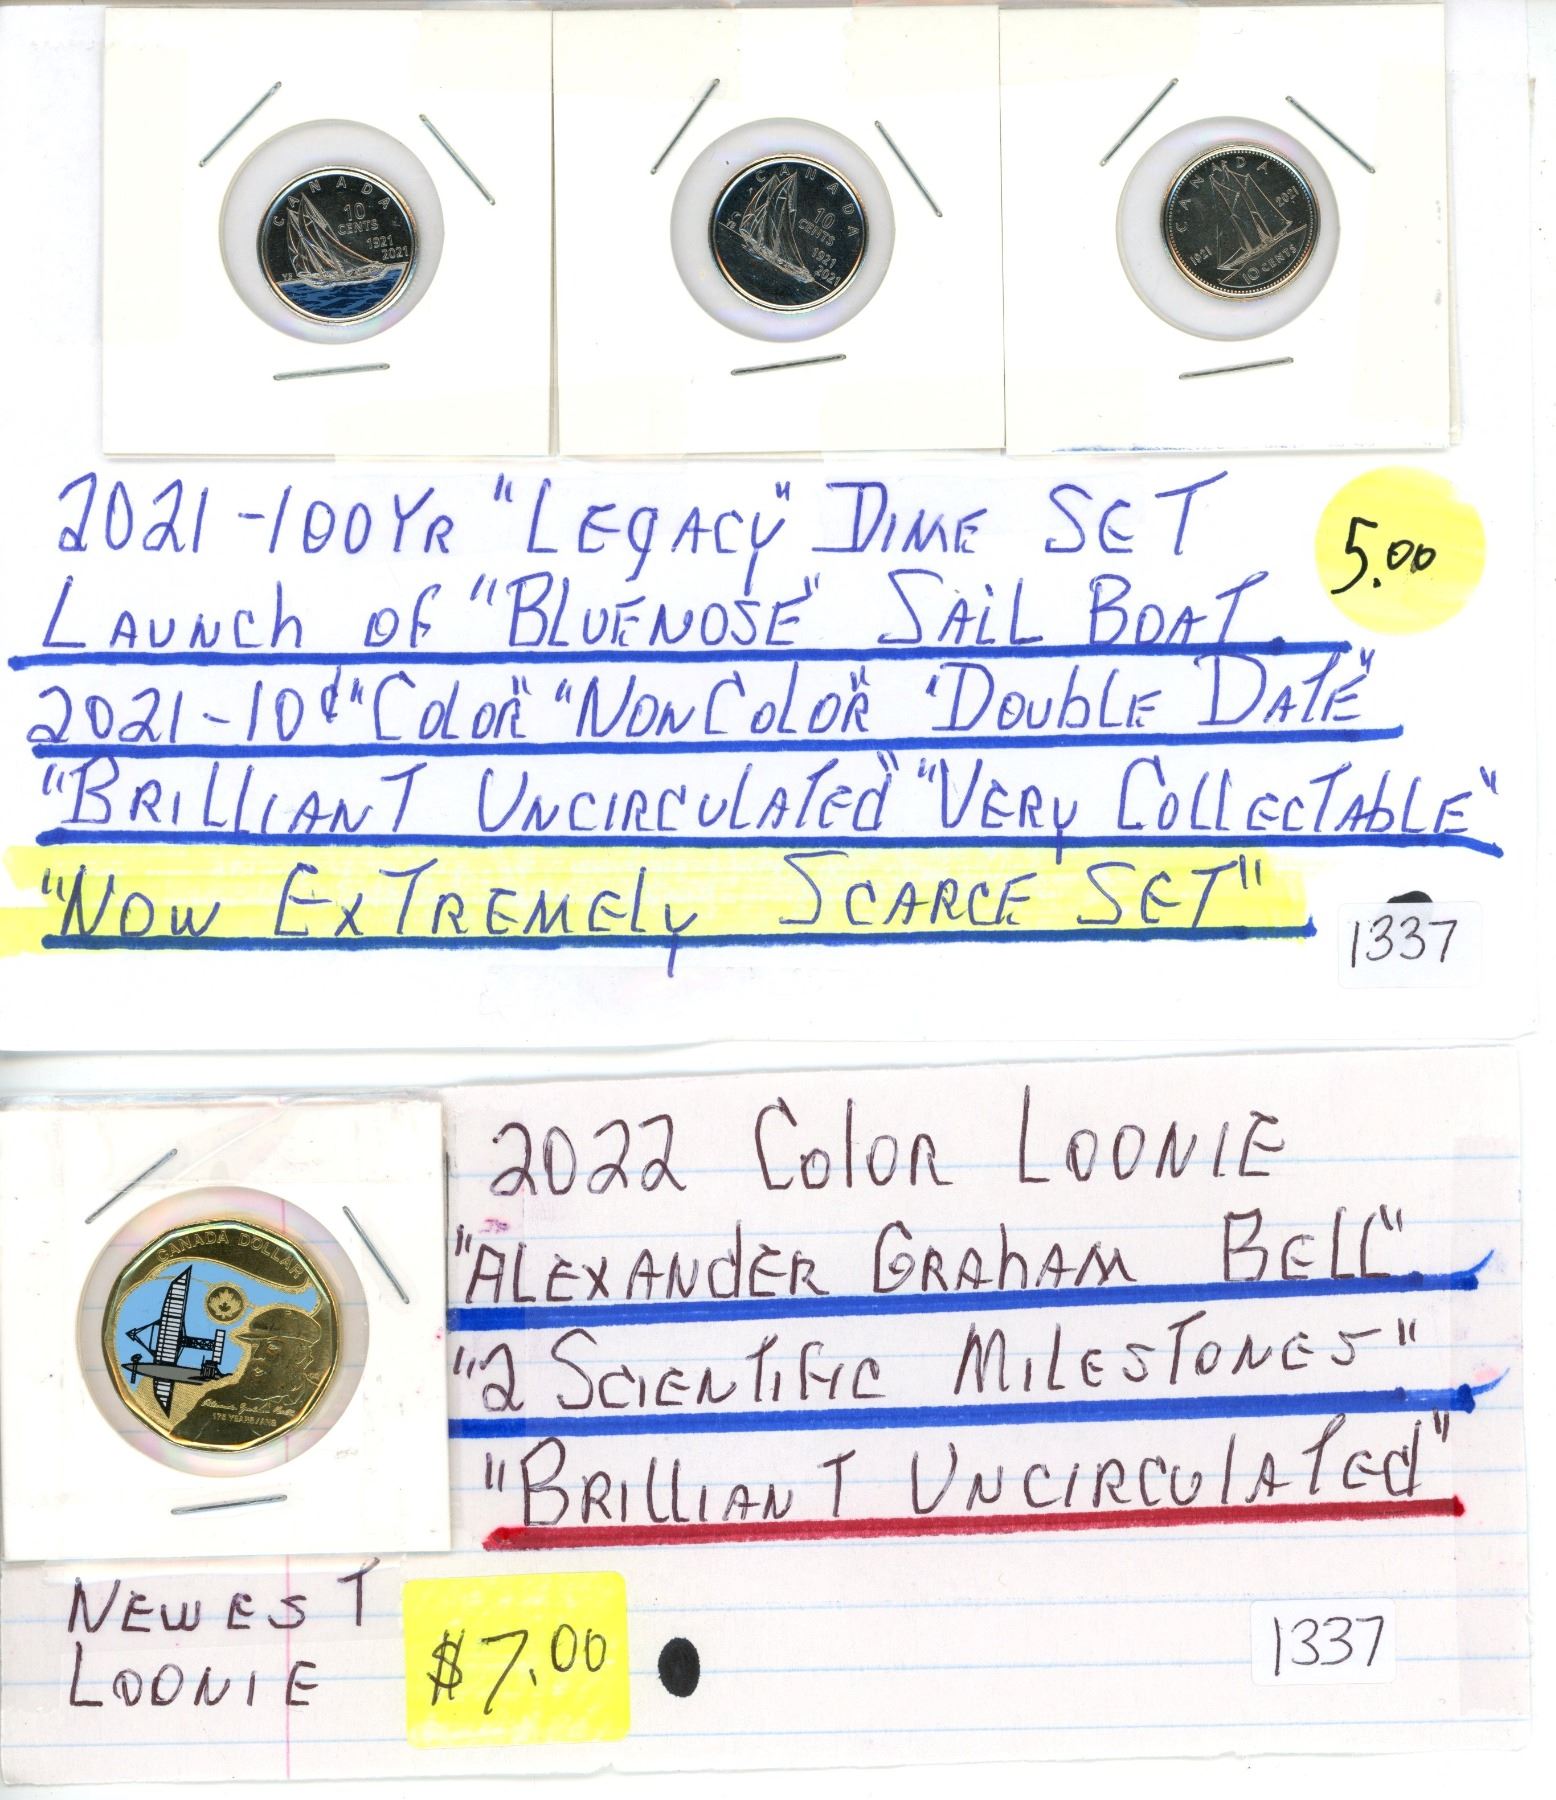 CANADA
10
CENTS
1921
2021
YS
CANADA
10
CENTS
1921
2021
YS
CANADA
1921
2021
10 CENTS
2021-100YR "LEGACY" DIME SET
5.00
LAUNCH OF "BLUENOSE" SAIL BOAT.
2021-10¢ "COLOR" "NONCOLOR" "DOUBLE DATE"
"BRILLIANT UNCIRCULATED" "VERY COLLECTABLE"
"NOW EXTREMELY SCARCE SET"
1337
2022 COLOR LOONIE
"ALEXANDER GRAHAM BELL".
"2 SCIENTIFIC MILESTONES"
"BRILLIANT UNCIRCULATED"
CANADA DOLLAR
175 YEARS/ANS
NEWEST
LOONIE
$7.00
1337